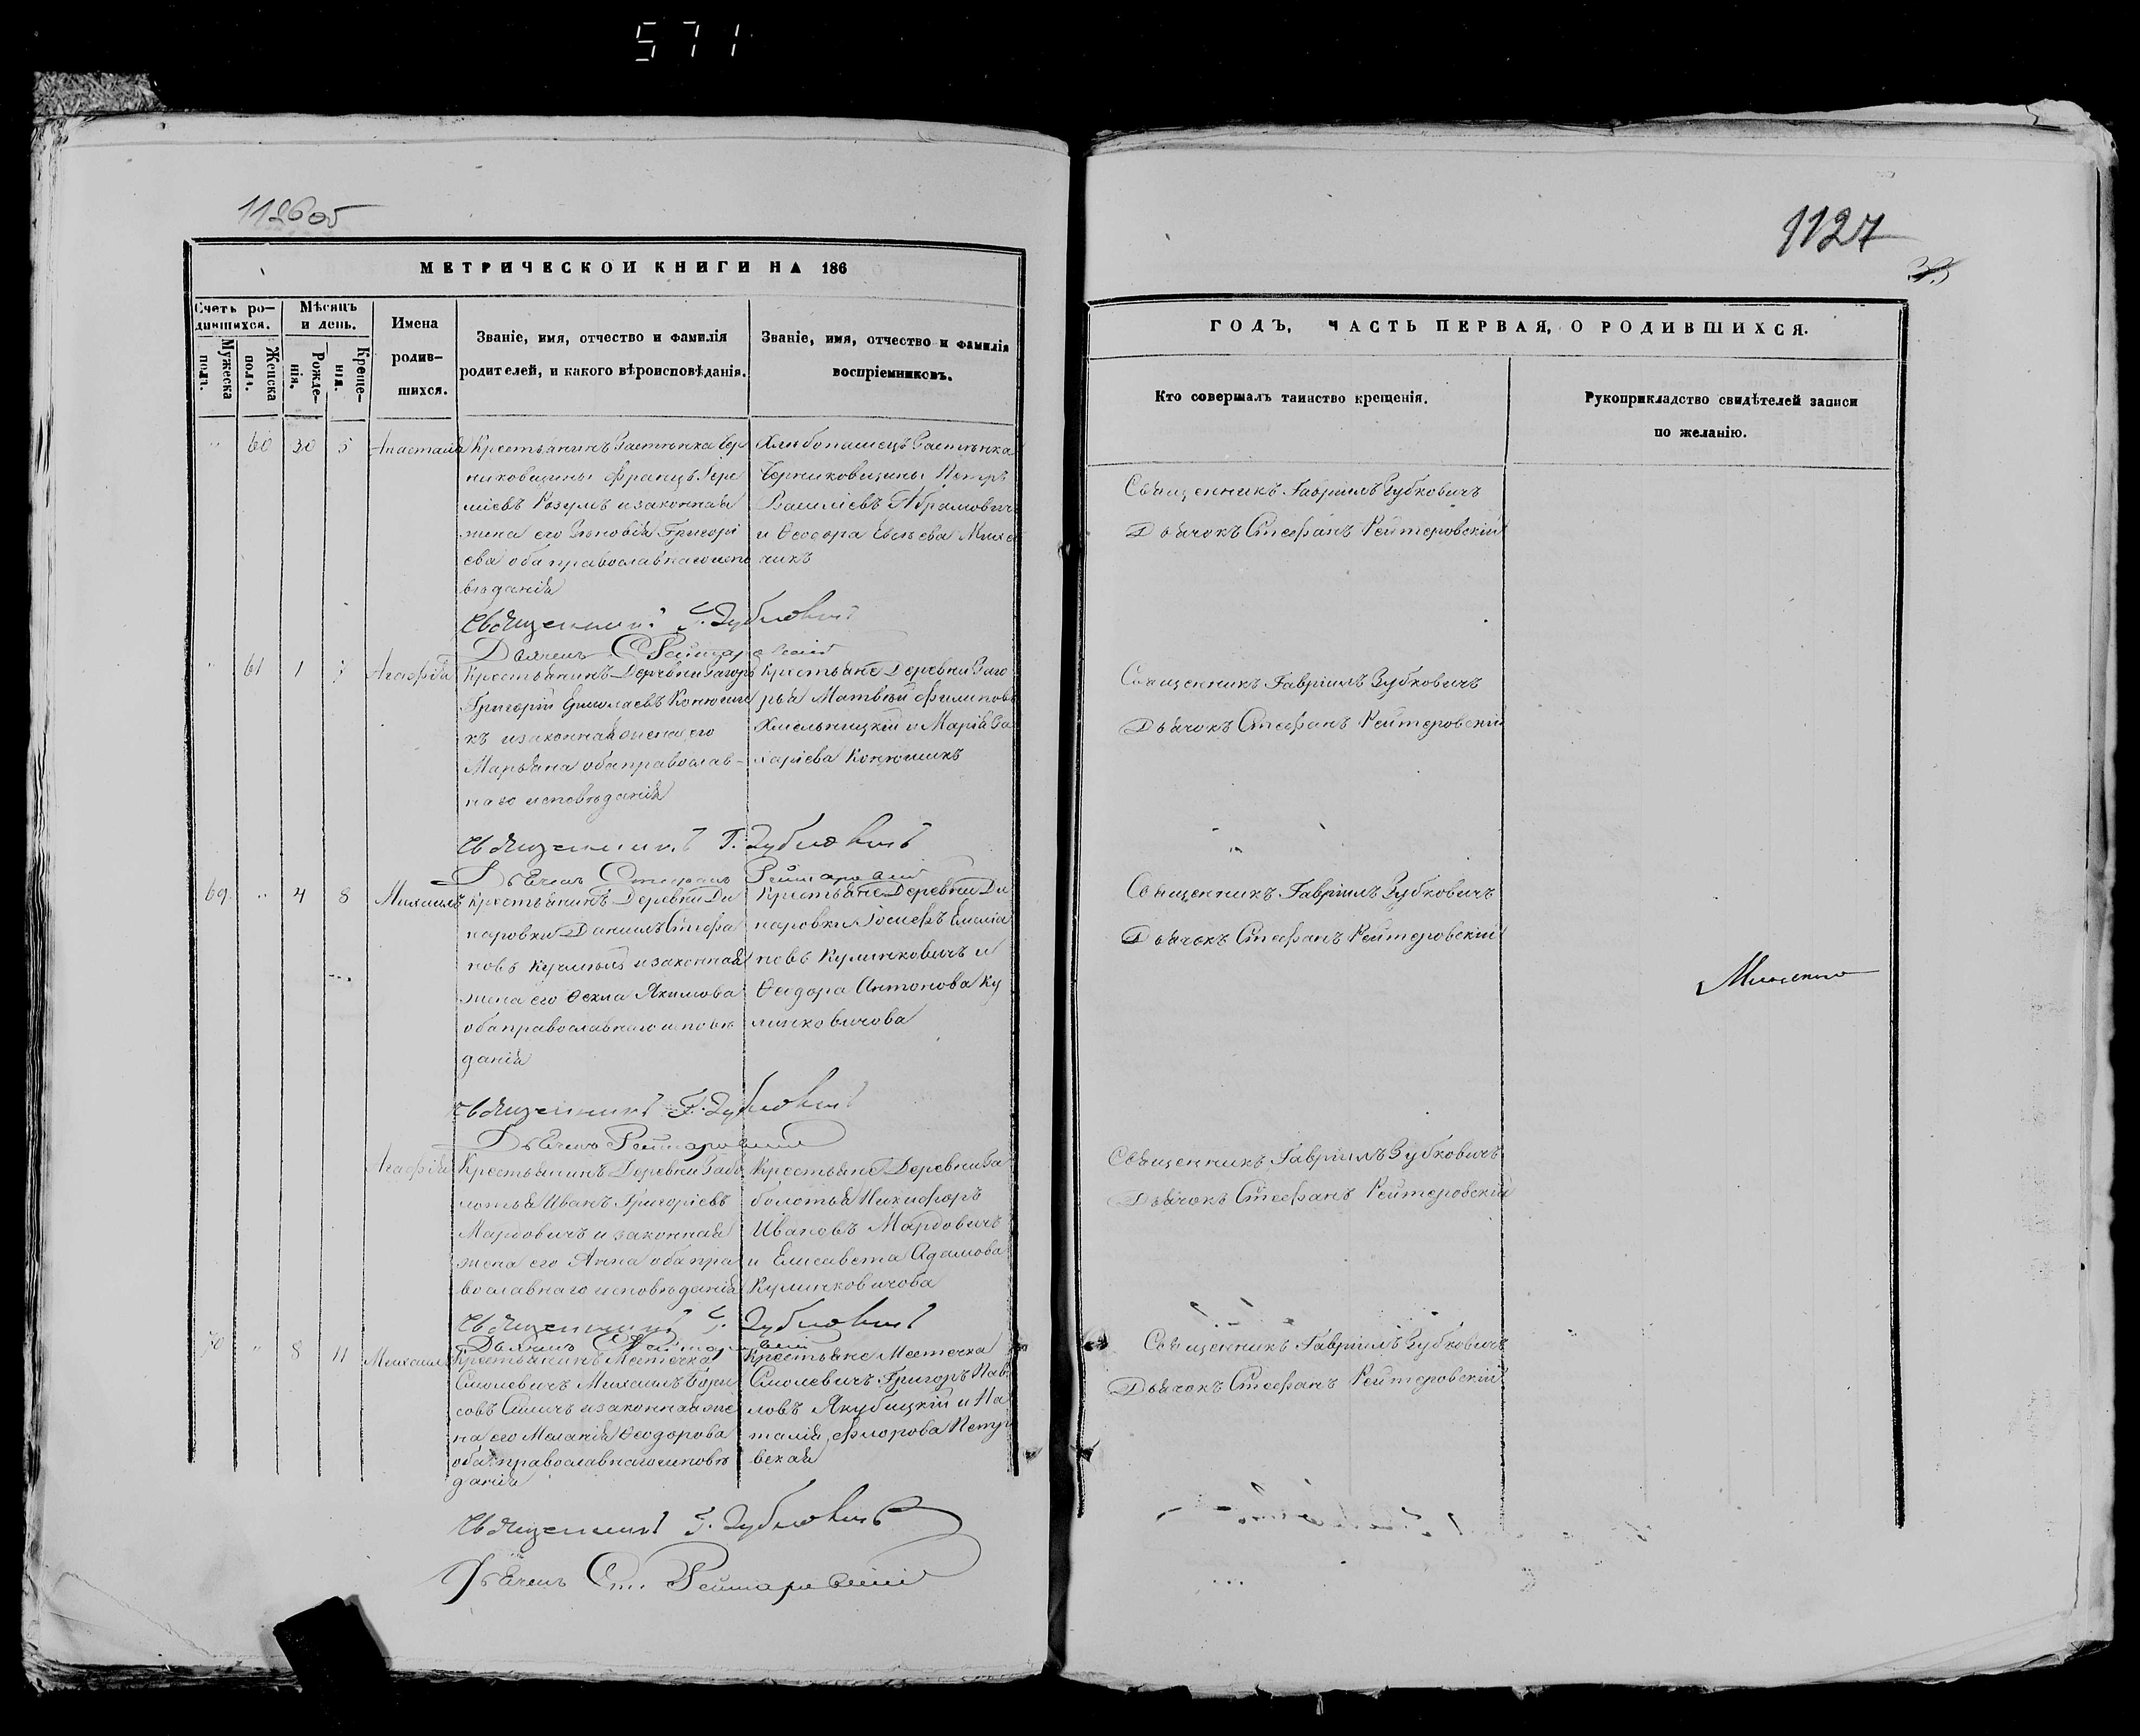 571
1126об
МЕТРИЧЕСКОИ КНИГИ НА 186
Счетъ ро-
дившихся.
Мѣсяцъ
и день.
Мужеска
пола.
Женска
пола.
Рожде-
нія.
Креще-
нія.
Имена
родив-
шихся.
Званіе, имя, отчество и фамилія
родителей, и какого вѣроисповѣданія.
Званіе, имя, отчество и фамилія
воспріемниковъ.
" 60 30 5 Анастасія
Крестьянинъ Застѣнка Чер
никовщины Францъ
Розумъ и законная
жена его Зѣновія Григорі
ева оба православнаго испо
вѣданія
Хлѣбопашецъ Застѣнка
Черниковщины Петръ
Василіевъ Абрамович
и Ѳеодора
чикъ
Священникъ Г. Зубковичъ
Дьячекъ С Рейтаровскій
" 61 1 7 Агафія
Крестьянинъ Деревни Загорь
Григорій Конюши
къ и законная жена его
Марьяна оба православ-
наго исповѣданія
Крестьяне Деревни Заго
рья Матвѣй Филипповъ
Хмельницкій и Марія За
харіева Конюшикъ
Священникъ Г. Зубковичъ
Дьячекъ Стефанъ Рейтаровскій
69 " 4 8 Михаилъ
Крестьянинъ Деревни Ди
наровки Даніилъ Стефа
новъ и законная
жена его Ѳекла Якимова
оба православнаго исповѣ
данія
Крестьяне Деревни Ди
наровки Іосифъ Емилія
новъ Кулинковичъ и
Ѳеодора Антонова Ку
линковичова
Священникъ Г. Зубковичъ
Дьячекъ Рейтаровскій
Агафія
Крестьянинъ Деревни Забо
лотья Иванъ Григоріевъ
Мардовичъ и законная
жена его Анна оба пра
вославнаго исповѣданія
Крестьяне Деревни За
болотья Никифоръ
Ивановъ Мардовичъ
и Елисавета Адамова
Кулинковичова
Священникъ Г. Зубковичъ
70 " 8 11 Михаилъ
Крестьянинъ Местечка
Смолевичъ Михаилъ Бори
совъ и законная же
на его Меланія Ѳеодорова
оба православнаго исповѣ
данія
Крестьяне Местечка
Смолевичъ Григоръ Пав
ловъ Якубицкій и На
талія Флорова Петр
вская
Священникъ Г. Зубковичъ
Дьячекъ Ст. Рейтаровскій
1127
33
ГОДЪ, ЧАСТЬ ПЕРВАЯ, О РОДИВШИХСЯ.
Кто совершалъ таинство крещенія.
Рукоприкладство свидѣтелей записи
по желанію.
Священникъ Гавріилъ Зубковичъ
Дьячокъ Стефанъ Рейтеровскій
Священникъ Гавріилъ Зубковичъ
Дьячокъ Стефанъ Рейтеровскій
Священникъ Гавріилъ Зубковичъ
Дьячокъ Стефанъ Рейтеровскій
Священникъ Гавріилъ Зубковичъ
Дьячокъ Стефанъ Рейтеровскій
Священникъ Гавріилъ Зубковичъ
Дьячокъ Стефанъ Рейтеровскій